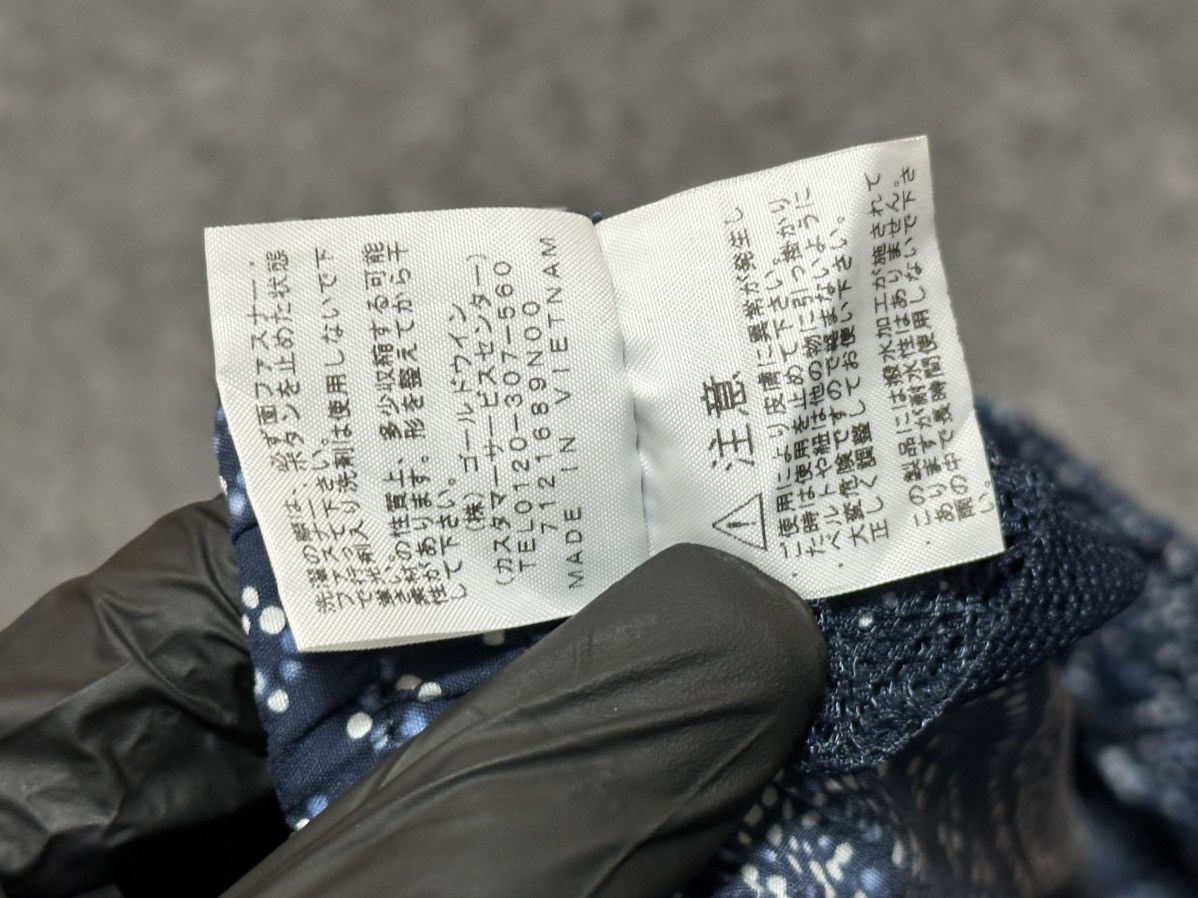 洗濯の際は、必ず面ファスナー・
ファスナー、ボタンを止めた状態
で洗って下さい。
蛍光剤入り洗剤は使用しないで下
さい。
素材の性質上、多少収縮する可能
性があります。形を整えてから干
して下さい。
(株) ゴールドウイン
(カスタマーサービスセンター)
TEL0120-307-560
7121689N00
MADE IN VIETNAM
注意
ご使用により皮膚に異常が発生し
た時は使用を止めて下さい。
ベルトや紐は他の物に引っ掛かり
大変危険ですので絡まないように
正しく調整してお使い下さい。
この製品には撥水加工が施されて
ありますが耐水性はありません。
雨の中で長時間使用しないで下さ
い。